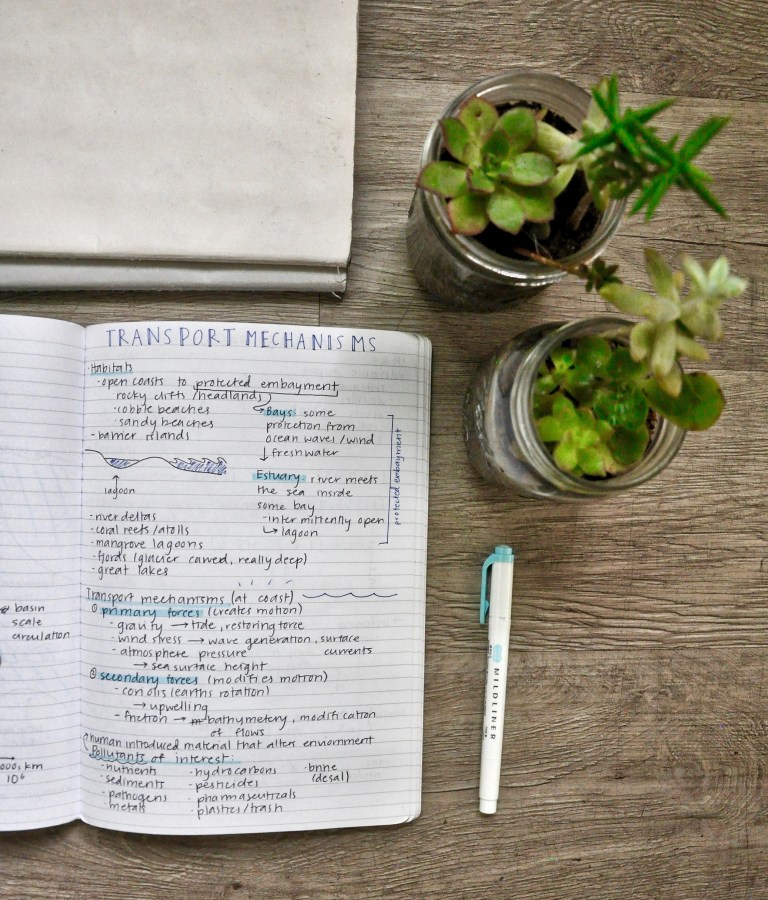 basin
scale
circulation
000s km
10⁶
TRANSPORT MECHANISMS
·Habitats
·open coasts to protected embayment
rocky cliffs /headlands)
·cobble beaches
·sandy beaches
-barrier islands
lagoon
→Bays: some
protection from
ocean waves/wind
↓ freshwater
Estuary: river meets
the sea inside
some bay
-intermittently open
↳ lagoon
protected embayment
-river deltas
-coral reefs/atolls
-mangrove lagoons
-fjords (glacier carved, really deep)
-great lakes
Transport mechanisms (at coast)
① primary forces (creates motion)
- gravity → tide, restoring force
- wind stress → wave generation, surface currents
- atmosphere pressure
→ sea surface height
② secondary forces (modifies motion)
- coriolis (earths rotation)
→ upwelling
- friction → bathymetery, modification
of flows
human introduced material that alters enviornment
Pollutants of interest:
·nutrients
·sediments
·pathogens
·metals
·hydrocarbons
·pesticides
·pharmaseuticals
·plastics/trash
·brine
(desal)
MILDLINER